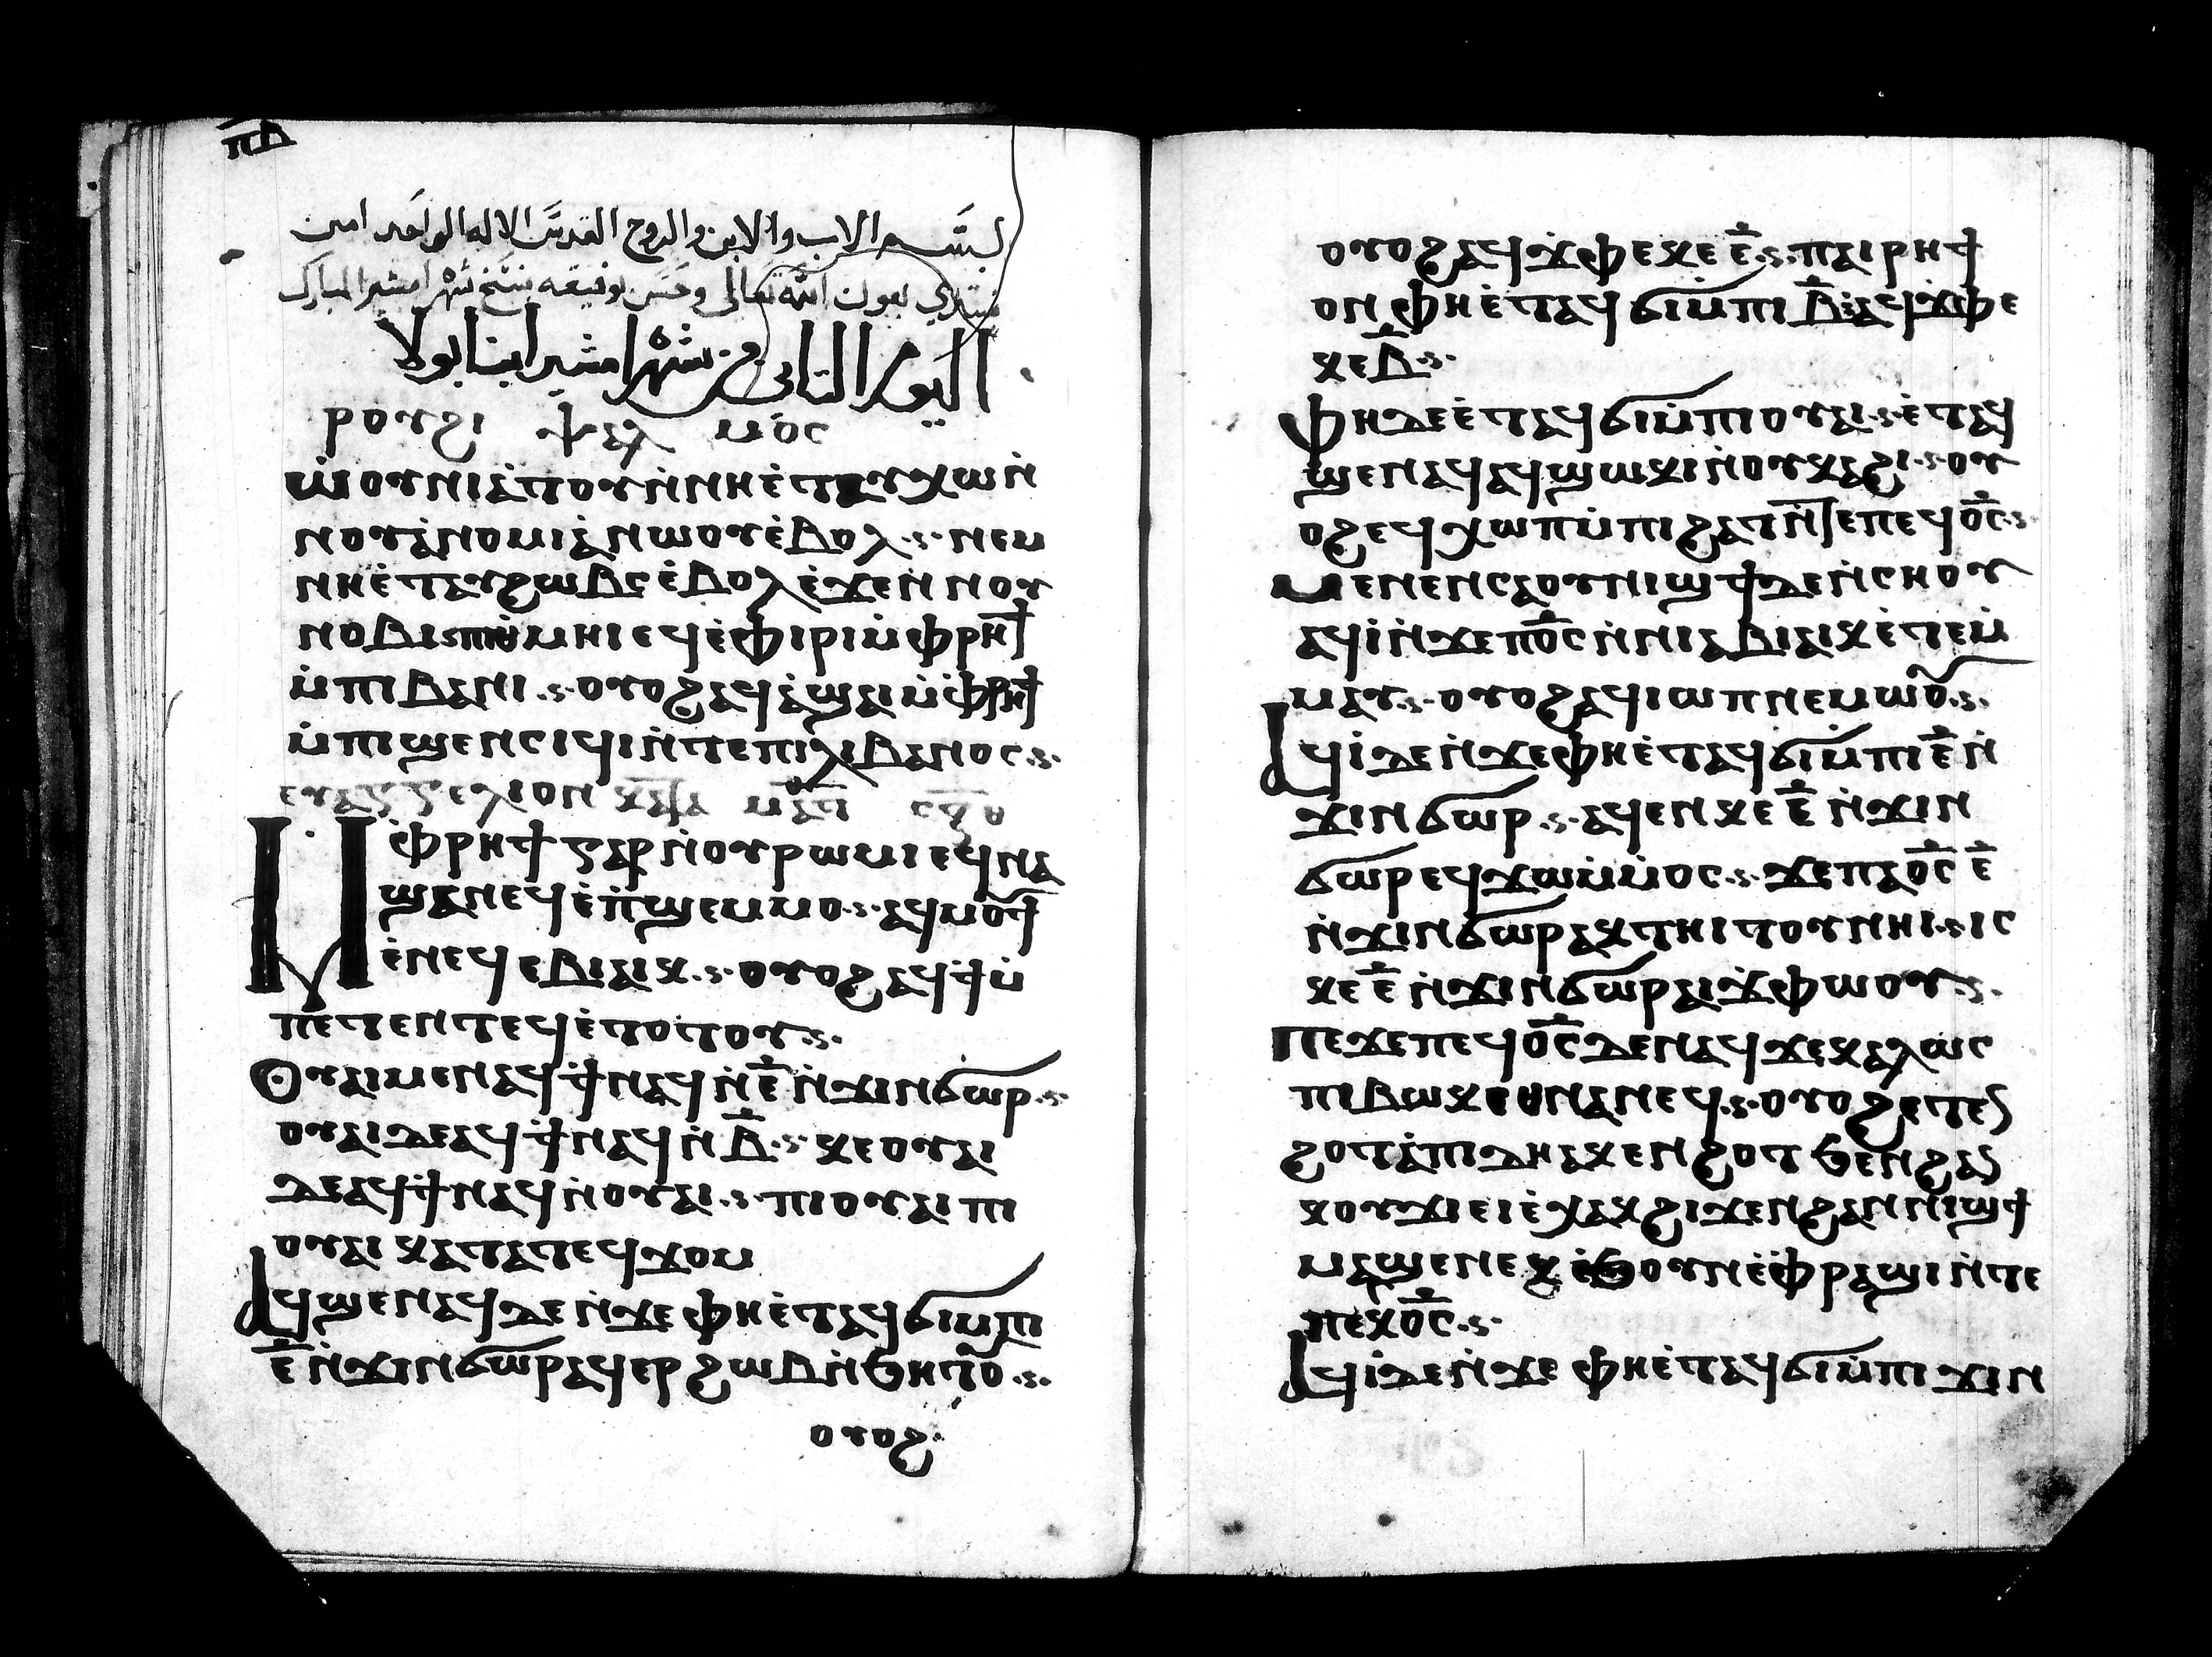 ⲡⲃ
بسم الاب والابن والروح القدس الاله الواحد امين
نبتدي بعون الله تعالى وحسن توفيقه بنسخ شهر امشير المبارك
اليوم التانى من شهر امشير انبا بولا
ⲣⲟⲩϩⲓ ⲯⲁⲗ ⲙⲟⲥ
ⲱⲟⲩⲛⲓⲁ̀ⲧⲟⲩ ⲛ̀ⲛⲏ ⲉ̀ⲧⲁⲩⲭⲱ ⲛ̀
ⲛⲟⲩⲁ̀ⲛⲟⲙⲓⲁ̀ ⲛⲱⲟⲩ ⲉ̀ⲃⲟⲗ ⲛⲉⲙ
ⲛⲏ ⲉ̀ⲧⲁⲩϩⲱⲃⲥ ⲉ̀ⲃⲟⲗ ⲉ̀ϫⲉⲛ ⲛⲟⲩ
ⲛⲟⲃⲓ ⲡⲓⲑ̀ⲙⲏⲓ ⲉϥⲉ̀ⲫⲓⲣⲓ ⲙ̀ⲫⲣⲏϯ
ⲙ̀ⲡⲓⲃⲁⲛⲓ ⲟⲩⲟϩ ⲁϥⲁ̀ϣⲁⲓ ⲙ̀ⲫⲣⲏϯ
ⲙ̀ⲡⲓϣⲉⲛⲥⲓϥⲓ ⲛ̀ⲧⲉ ⲡⲓⲗⲓⲃⲁⲛⲟⲥ
ⲉⲩⲁⲅⲅⲉⲗⲓⲟⲛ ⲕⲁⲧⲁ ⲙⲁⲧ
Ⲙ̀ⲫⲣⲏϯ ⲅⲁⲣ ⲛ̀ⲟⲩⲣⲱⲙⲓ ⲉϥⲛⲁ
ϣⲁⲛⲉϥ ⲉ̀ⲡϣⲉⲙⲙⲟ ⲁϥⲙⲟⲩϯ
ⲉ̀ⲛⲉϥⲉⲃⲓⲁⲓⲕ ⲟⲩⲟϩ ⲁϥϯ ⲙ̀
ⲡⲉⲧⲉⲛⲧⲉϥ ⲉ̀ⲧⲟⲧⲟⲩ
Ⲟⲩⲁⲓ ⲙⲉⲛ ⲁϥϯ ⲛⲁϥ ⲛ̀ⲉ̅ ⲛ̀ϫⲓⲛϭⲱⲣ
ⲟⲩⲁⲓ ⲇⲉ ⲁϥϯ ⲛⲁϥ ⲛ̀ⲃ̅ ⲕⲉⲟⲩⲁⲓ
ⲇⲉ ⲁϥϯ ⲛⲁϥ ⲛ̀ⲟⲩⲁⲓ ⲡⲓⲟⲩⲁⲓ ⲡⲓ
ⲟⲩⲁⲓ ⲕⲁⲧⲁ ⲧⲉϥϫⲟⲙ
Ⲁϥϣⲉⲛⲁϥ ⲇⲉ ⲛ̀ϫⲉ ⲫⲏ ⲉ̀ⲧⲁϥϭⲓ ⲙ̀ⲡⲓ
ⲉ̅ ⲛ̀ϫⲓⲛϭⲱⲣ ⲁϥⲉⲣϩⲱⲃ ⲛ̀ϧⲏⲧⲟⲩ
ⲟⲩⲟϩ
ⲟⲩⲟϩ ⲁϥϫ̀ⲫⲉ ⲕⲉ ⲉ̅ ⲡⲁⲓⲣⲏϯ
ⲟⲛ ⲫⲏ ⲉ̀ⲧⲁϥϭⲓ ⲙ̀ⲡⲓ ⲃ̅ ⲁϥϫ̀ⲫⲉ
ⲕⲉ ⲃ̅
Ⲫⲏ ⲇⲉ ⲉ̀ⲧⲁϥϭⲓ ⲙ̀ⲡⲓⲟⲩⲁⲓ ⲉ̀ⲧⲁϥ
ϣⲉⲛⲁϥ ⲁϥϣⲱⲕⲓ ⲛ̀ⲟⲩⲕⲁϩⲓ ⲟⲩ
ⲟϩ ⲉϥⲭⲱⲡ ⲙ̀ⲡⲓϩⲁⲧ ⲛ̀ⲧⲉ ⲡⲉϥⲟ̅ⲥ̅
Ⲙⲉⲛⲉⲛⲥⲁ ⲟⲩⲛⲓϣϯ ⲇⲉ ⲛ̀ⲥⲏⲟⲩ
ⲁϥⲓ̀ ⲛ̀ϫⲉ ⲡⲟ̅ⲥ̅ ⲛ̀ⲛⲓⲁ̀ⲃⲓⲁⲓⲕ ⲉ̀ⲧⲉⲙ̀
ⲙⲁⲩ ⲟⲩⲟϩ ⲁϥⲓⲱⲡ ⲛⲉⲙⲱⲟⲩ
Ⲁϥⲓ̀ ⲇⲉ ⲛ̀ϫⲉ ⲫⲏ ⲉ̀ⲧⲁϥϭⲓ ⲙ̀ⲡⲓ ⲉ̅ ⲛ̀
ϫⲓⲛϭⲱⲣ ⲁϥⲉⲛ ⲕⲉ ⲉ̅ ⲛ̀ϫⲓⲛ
ϭⲱⲣ ⲉϥϫⲱ ⲙ̀ⲙⲟⲥ ϫⲉ ⲡⲁⲟ̅ⲥ̅ ⲉ̅
ⲛ̀ϫⲓⲛϭⲱⲣ ⲁⲕⲧⲏⲓⲧⲟⲩ ⲛⲏⲓ ⲓⲥ
ⲕⲉ ⲉ̅ ⲛ̀ϫⲓⲛϭⲱⲣ ⲁⲓϫ̀ⲫⲱⲟⲩ
Ⲡⲉϫⲉ ⲡⲉϥⲟ̅ⲥ̅ ⲇⲉ ⲛⲁϥ ϫⲉ ⲕⲁⲗⲱⲥ
ⲡⲓⲃⲱⲕ ⲉⲑⲛⲁⲛⲉϥ ⲟⲩⲟϩ ⲉⲧⲉⲛ
ϩⲟⲧ ⲁ̀ⲡⲓⲇⲏ ⲁⲕⲉⲛϩⲟⲧ ϧⲉⲛ ϩⲁⲛ
ⲕⲟⲩϫⲓ ⲉⲓⲉ̀ⲭⲁⲕ ϩⲓϫⲉⲛ ϩⲁⲛⲛⲓϣϯ
ⲙⲁϣⲉⲛⲉⲕ ⲉ̀ϧⲟⲩⲛ ⲉ̀ⲫⲣⲁϣⲓ ⲛ̀ⲧⲉ
ⲡⲉⲕⲟ̅ⲥ̅
Ⲁϥⲓ̀ ⲇⲉ ⲛ̀ϫⲉ ⲫⲏ ⲉ̀ⲧⲁϥϭⲓ ⲙ̀ⲡⲓ ϫⲓⲛ